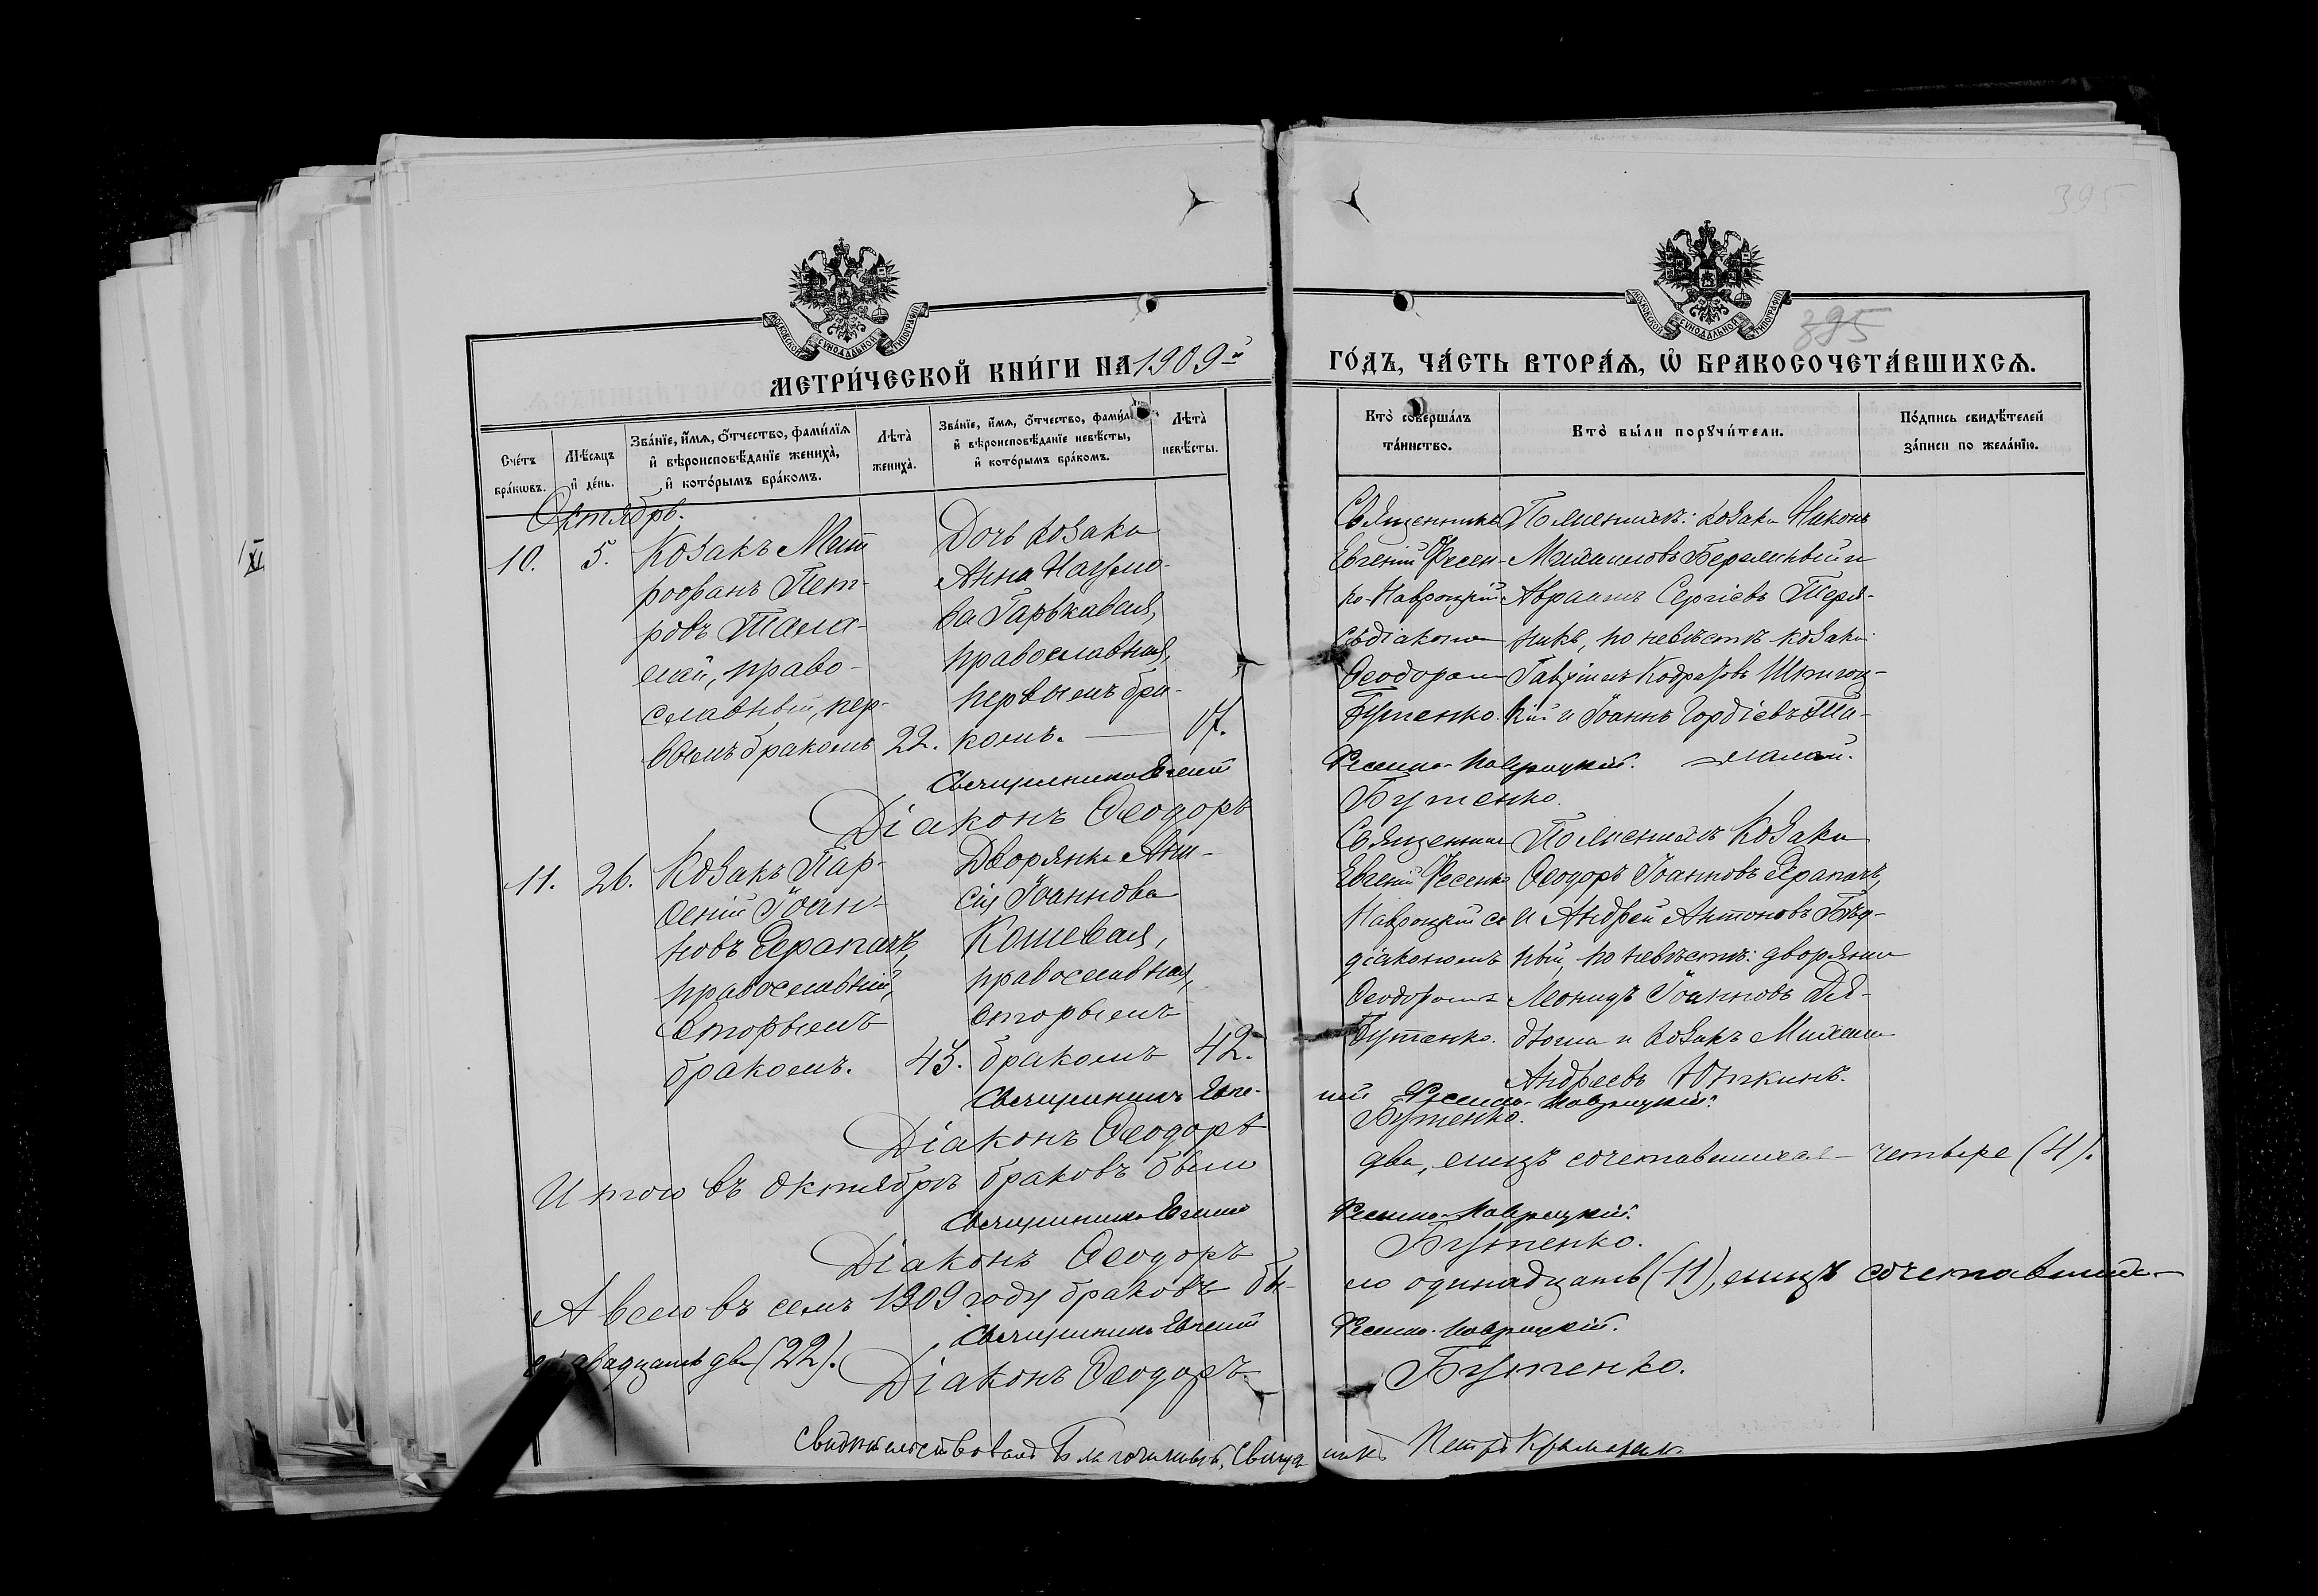 395
МОСКОВСКОЙ СУНОДАЛЬНОЙ ТИПОГРАФІИ
МОСКОВСКОЙ СУНОДАЛЬНОЙ ТИПОГРАФІИ
395
МЕТРИ́ЧЕСКОЙ КНИ́ГИ НА 1909й
ГО́ДЪ, ЧА́СТЬ ВТОРА́Я, Ѡ҆ БРАКОСОЧЕТА́ВШИХСЯ.
Сче́тъ бра́ковъ.
Мѣ́сяцъ и҆ де́нь.
Зва́нїе, и҆́мя, ѻ҆́тчество, фами́лїя
и҆ вѣроисповѣ́данїе жениха̀,
и҆ кото́рымъ бра́комъ.
Лѣ́та̀ жениха̀.
Зва́нїе, и҆́мя, ѻ҆́тчество, фами́лїя
и҆ вѣроисповѣ́данїе невѣ́сты,
и҆ кото́рымъ бра́комъ.
Лѣ́та̀ невѣ́сты.
Кто̀ соверша́лъ
та́инство.
Кто̀ бы́ли порꙋчи́тели.
По́дпись свидѣ́телей
за́писи по жела́нїю.
Октябрь.
10.
5.
Козакъ Мит
рофанъ Пет-
ровъ Тала-
лай, право-
славный, пер-
вымъ бракомъ
22.
Дочь козака
Анна Наумо-
ва Гарькавая,
православная,
первымъ бра-
комъ.
17.
Священникъ
Евгеній Фесен-
ко-Навроцкій
съ діакономъ
Ѳеодоромъ
Бутенко.
По женихѣ: козаки Никонъ
Михаиловъ
Авраамъ Сергіевъ
по невѣстѣ козаки
Гавріилъ
кій и Іоаннъ Гордіевъ Та-
лалай.
Священникъ Евгеній Фесенко-Навроцкій.
Діаконъ Ѳеодоръ Бутенко.
11.
26.
Козакъ Пар-
ѳеній Іоан-
новъ Харапачъ,
православный,
вторымъ
бракомъ.
43.
Дворянка
Іоаннова
Кошевая,
православная,
вторымъ
бракомъ
42.
Священникъ
Евгеній Фесенко
Навроцкій съ
діакономъ
Ѳеодоромъ
Бутенко.
По женихѣ козаки
Ѳеодоръ Іоанновъ Харапачъ,
и Андрей Антоновъ Бѣд-
ный, по невѣстѣ: дворянинъ
Леонидъ Іоанновъ
и козакъ Михаилъ
Андреевъ
Священникъ Евге- ній Фесенко-Навроцкій.
Діаконъ Ѳеодоръ Бутенко.
Итого въ октябрѣ браковъ было два, лицъ сочетавшихся — четыре (4).
Священникъ Евгеній Фесенко-Навроцкій.
Діаконъ Ѳеодоръ Бутенко.
А всего въ семъ 1909 году браковъ бы- ло одинадцать (11), лицъ сочетавших-
ся двадцать два (22).
Священникъ Евгеній Фесенко-Навроцкій.
Діаконъ Ѳеодоръ Бутенко.
Свидѣтельствовалъ Благочинный, Священникъ Петръ